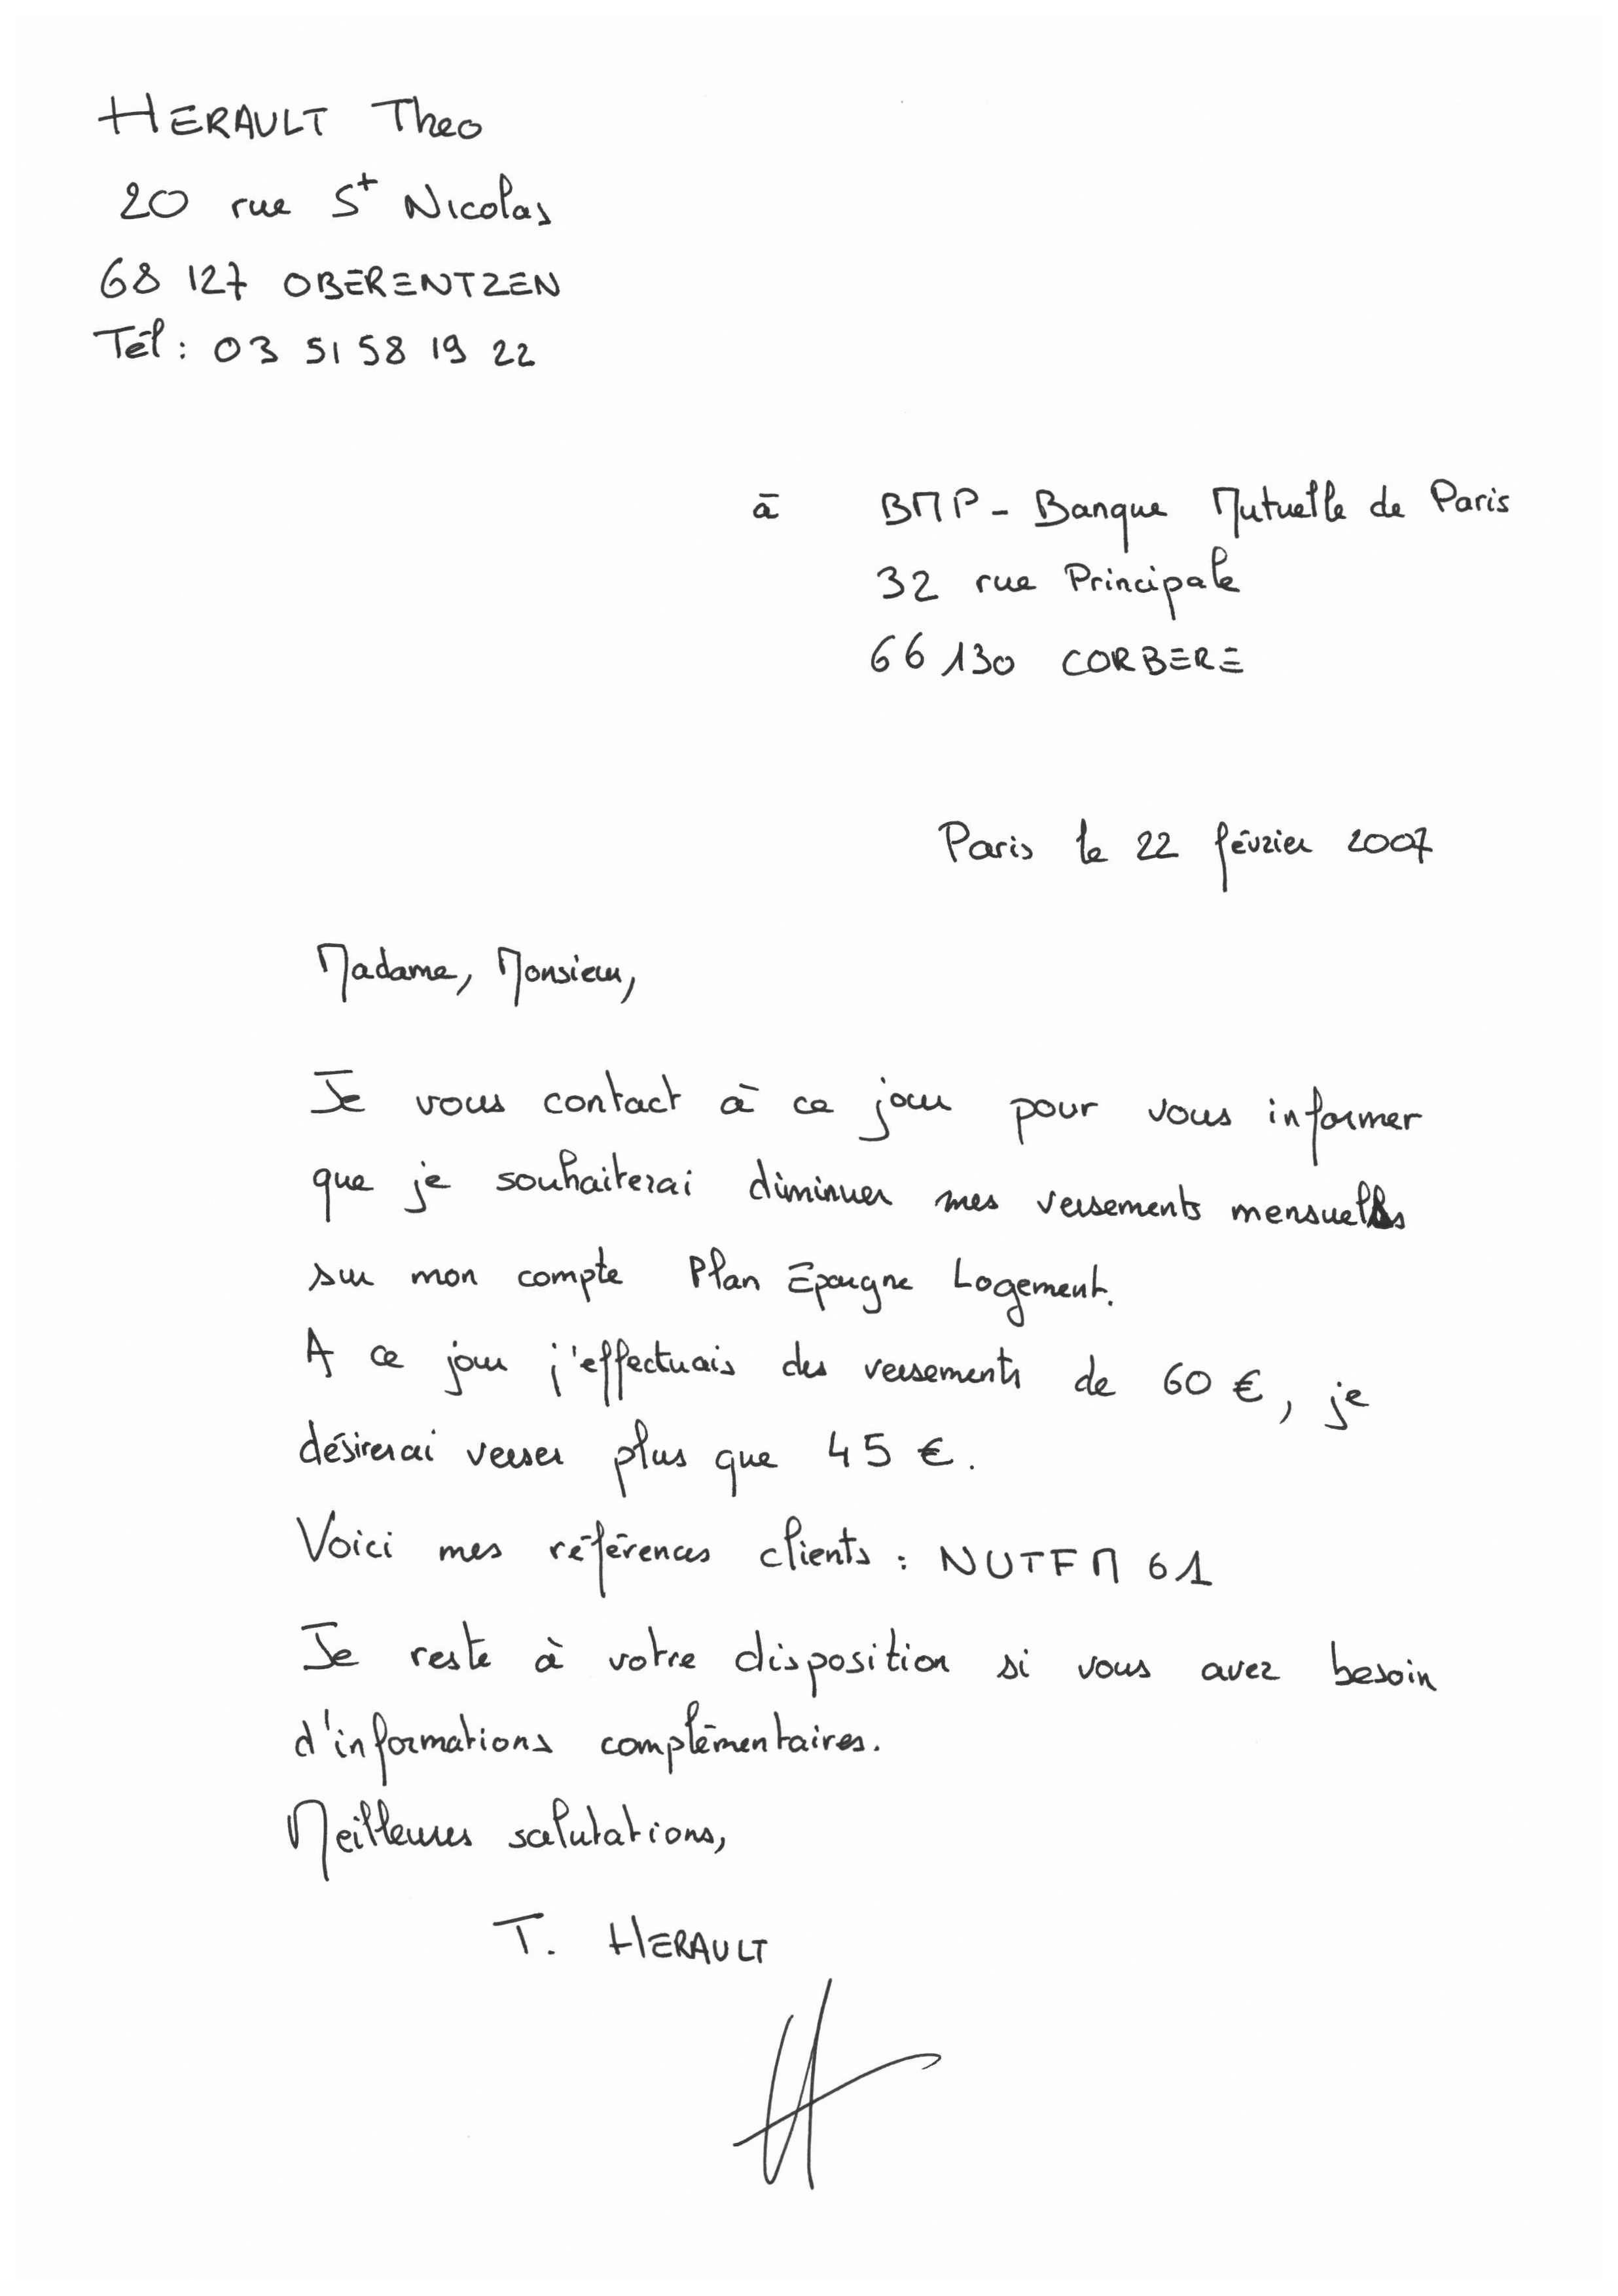 HERAULT Theo
20 rue St Nicolas
68 127 OBERENTZEN
Tél : 03 51 58 19 22
à BMP - Banque Mutuelle de Paris
32 rue Principale
66 130 CORBERE
Paris le 22 février 2007
Madame, Monsieur,
Je vous contact à ce jour pour vous informer
que je souhaiterai diminuer mes versements mensuels
sur mon compte Plan Epargne Logement.
A ce jour j'effectuais des versements de 60 €, je
désirerai verser plus que 45 €.
Voici mes références clients : NUTFM 61
Je reste à votre disposition si vous avez besoin
d'informations complémentaires.
Meilleures salutations,
T. HERAULT